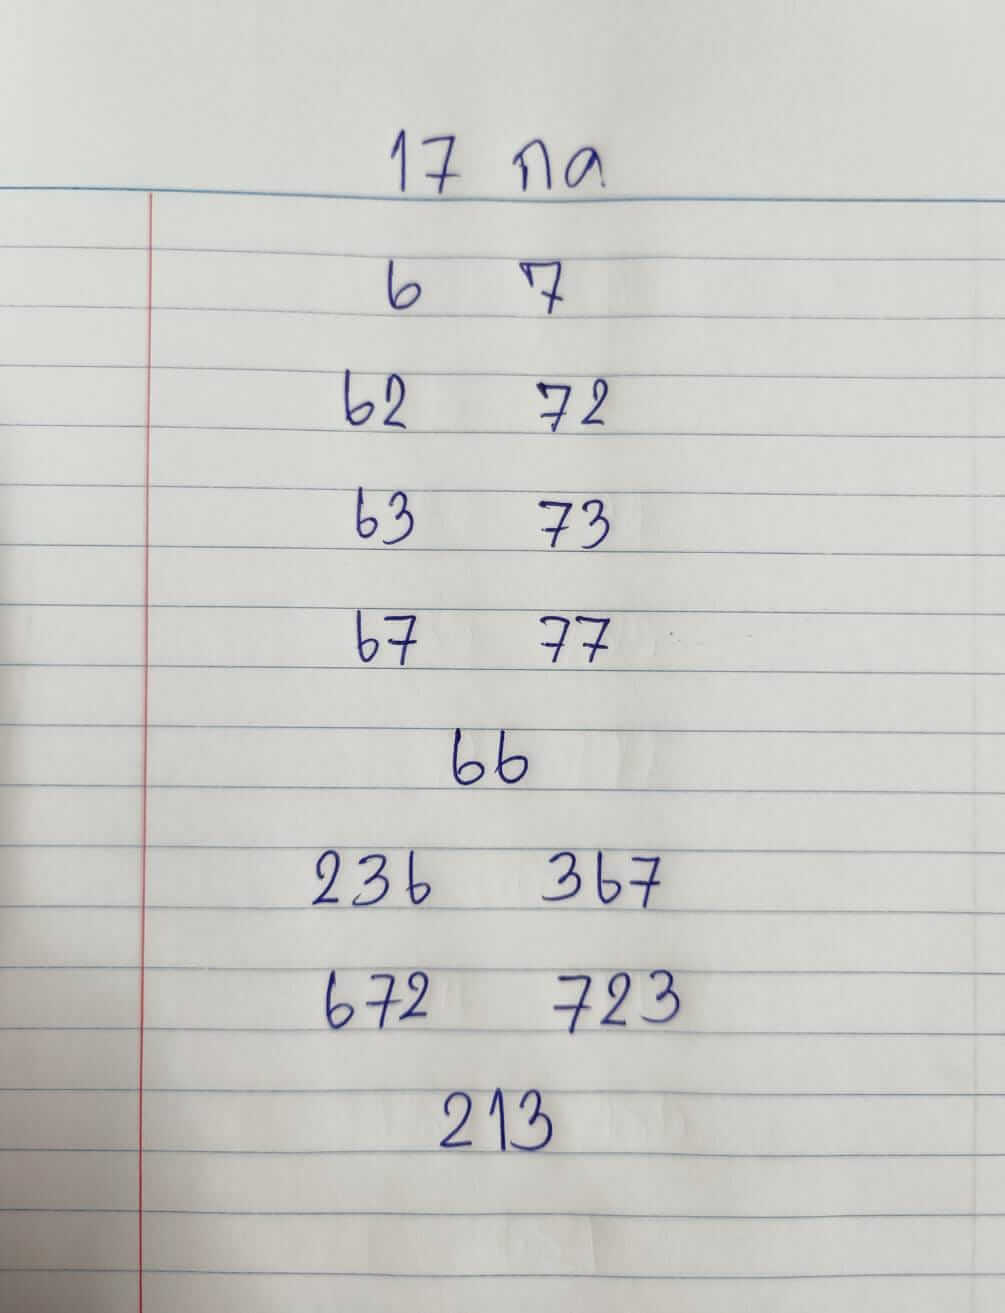 17 กค
6 7
62 72
63 73
67 77
66
236 367
672 723
213